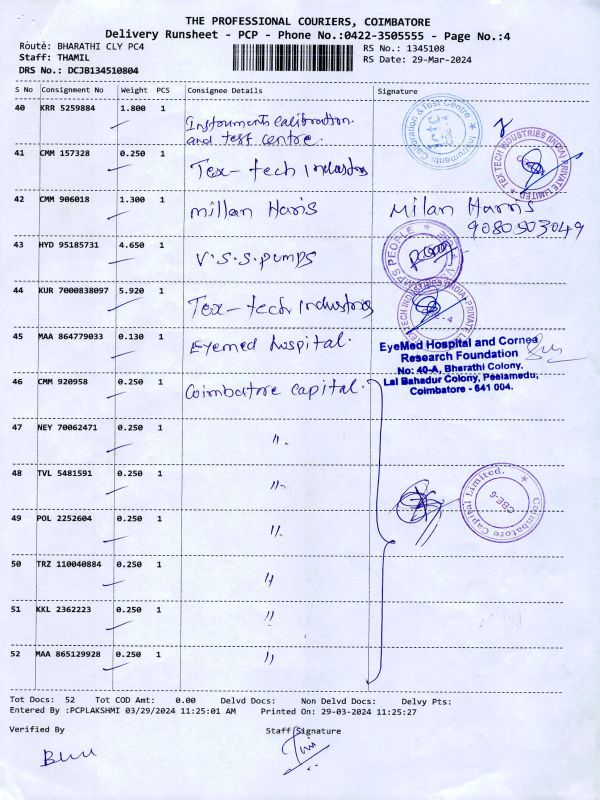 THE PROFESSIONAL COURIERS, COIMBATORE
Delivery Runsheet - PCP - Phone No.:0422-3505555 - Page No.:4
Route: BHARATHI CLY PC4 RS No.: 1345108
Staff: THAMIL RS Date: 29-Mar-2024
DRS No.: DCJB134510804
S No Consignment No Weight PCS Consignee Details Signature
40 KRR 5259884 1.800 1 Instruments calibration
and test centre. Instruments Calibration & Test Centre
41 CMM 157328 0.250 1 Tex-tech Industries TEX TECH INDUSTRIES (INDIA) PRIVATE LIMITED
42 CMM 906018 1.300 1 millan Haris Milan Harris
43 HYD 95185731 4.650 1 V.S.S.pumps
44 KUR 7000838097 5.920 1 Tex-tech industries TEX TECH INDUSTRIES (INDIA) PRIVATE
45 MAA 864779033 0.130 1 Eyemed hospital. EyeMed Hospital and Cornea
Research Foundation
No: 40-A, Bharathi Colony.
Lal Bahadur Colony, Peelamedu,
Coimbatore - 641 004.
46 CMM 920958 0.250 1 Coimbatore capital.
47 NEY 70062471 0.250 1 "
48 TVL 5481591 0.250 1 "
49 POL 2252604 0.250 1 " Coimbatore Capital Limited. CBE-6
50 TRZ 110040884 0.250 1 "
51 KKL 2362223 0.250 1 "
52 MAA 865129928 0.250 1 "
Tot Docs: 52 Tot COD Amt: 0.00 Delvd Docs: Non Delvd Docs: Delvy Pts:
Entered By :PCPLAKSHMI 03/29/2024 11:25:01 AM Printed On: 29-03-2024 11:25:27
Verified By Staff Signature